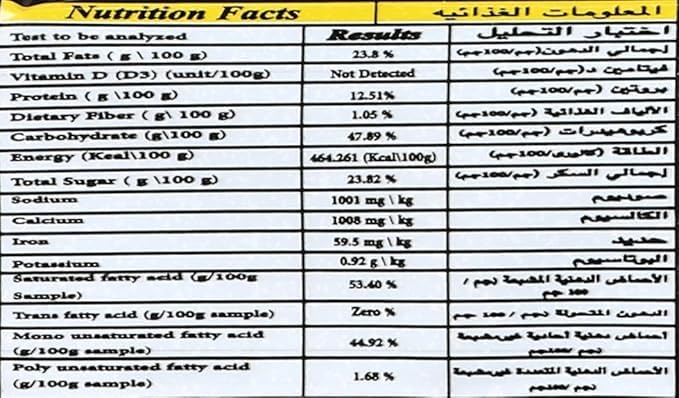 Nutrition Facts المعلومات الغذائيه
Test to be analyzed Results اختبار التحليل
Total Fats ( g \ 100 g) 23.8 % إجمالي الدهون(جم/100جم)
Vitamin D (D3) (unit/100g) Not Detected فيتامين د(جم/100جم)
Protein ( g \100 g) 12.51% بروتين (جم/100جم)
Dietary Fiber ( g\ 100 g) 1.05 % الألياف الغذائية (جم/100جم)
Carbohydrate (g\100 g) 47.89 % كربوهيدرات (جم/100جم)
Energy (Kcal\100 g) 464.261 (Kcal\100g) الطاقة (كالورى/100جم)
Total Sugar ( g \100 g) 23.82 % إجمالي السكر (جم/100جم)
Sodium 1001 mg \ kg صوديوم
Calcium 1008 mg \ kg الكالسيوم
Iron 59.5 mg \ kg حديد
Potassium 0.92 g \ kg البوتاسيوم
Saturated fatty acid (g/100g Sample) 53.40 % الأحماض الدهنية المشبعة (جم / 100 جم
Trans fatty acid (g/100g sample) Zero % الدهون المتحولة (جم / 100 جم
Mono unsaturated fatty acid (g/100g sample) 44.92 % أحماض دهنية أحادية غير مشبعة (جم /100جم
Poly unsaturated fatty acid (g/100g sample) 1.68 % الأحماض الدهنية المتعددة غير مشبعة (جم /100جم